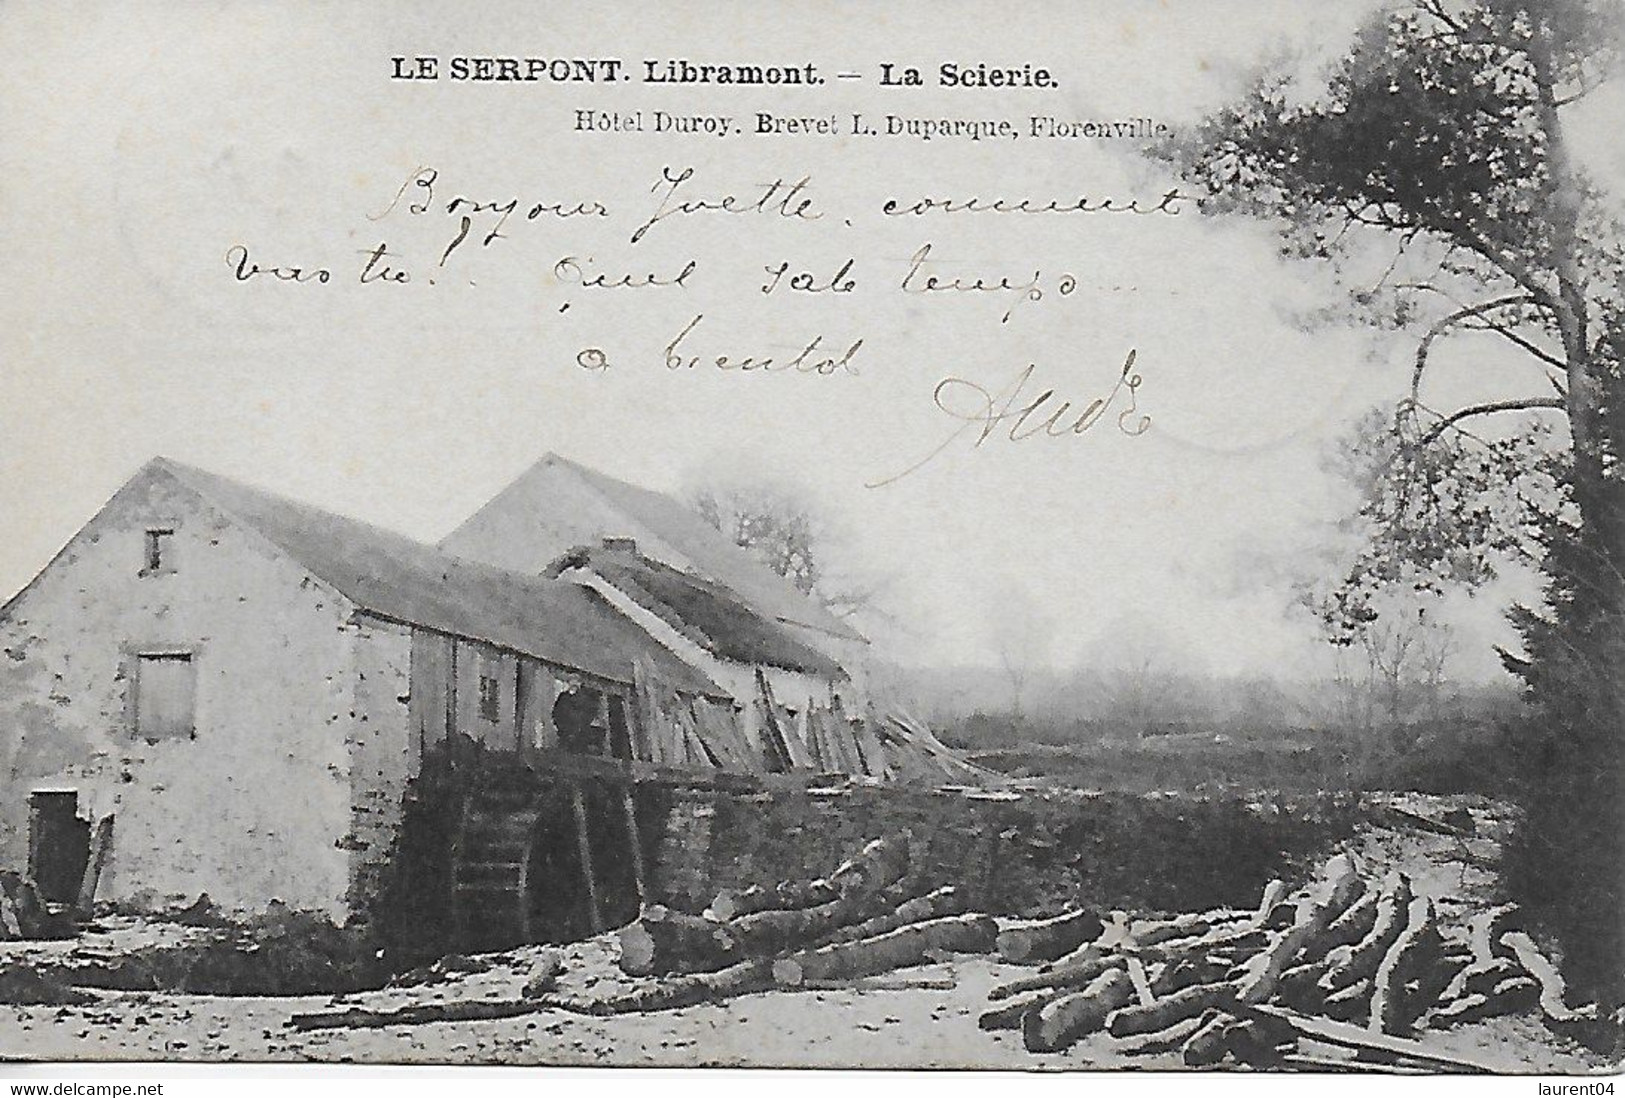 LE SERPONT. Libramont. — La Scierie.
Hôtel Duroy. Brevet L. Duparque, Florenville.
Bonjour Yvette, comment
vas tu! . Quel sale temps ....
à bientôt
www.delcampe.net
laurent04